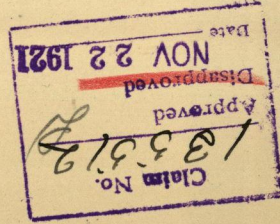 Claim No.
133312
Approved
Disapproved
NOV 22 1921
Date